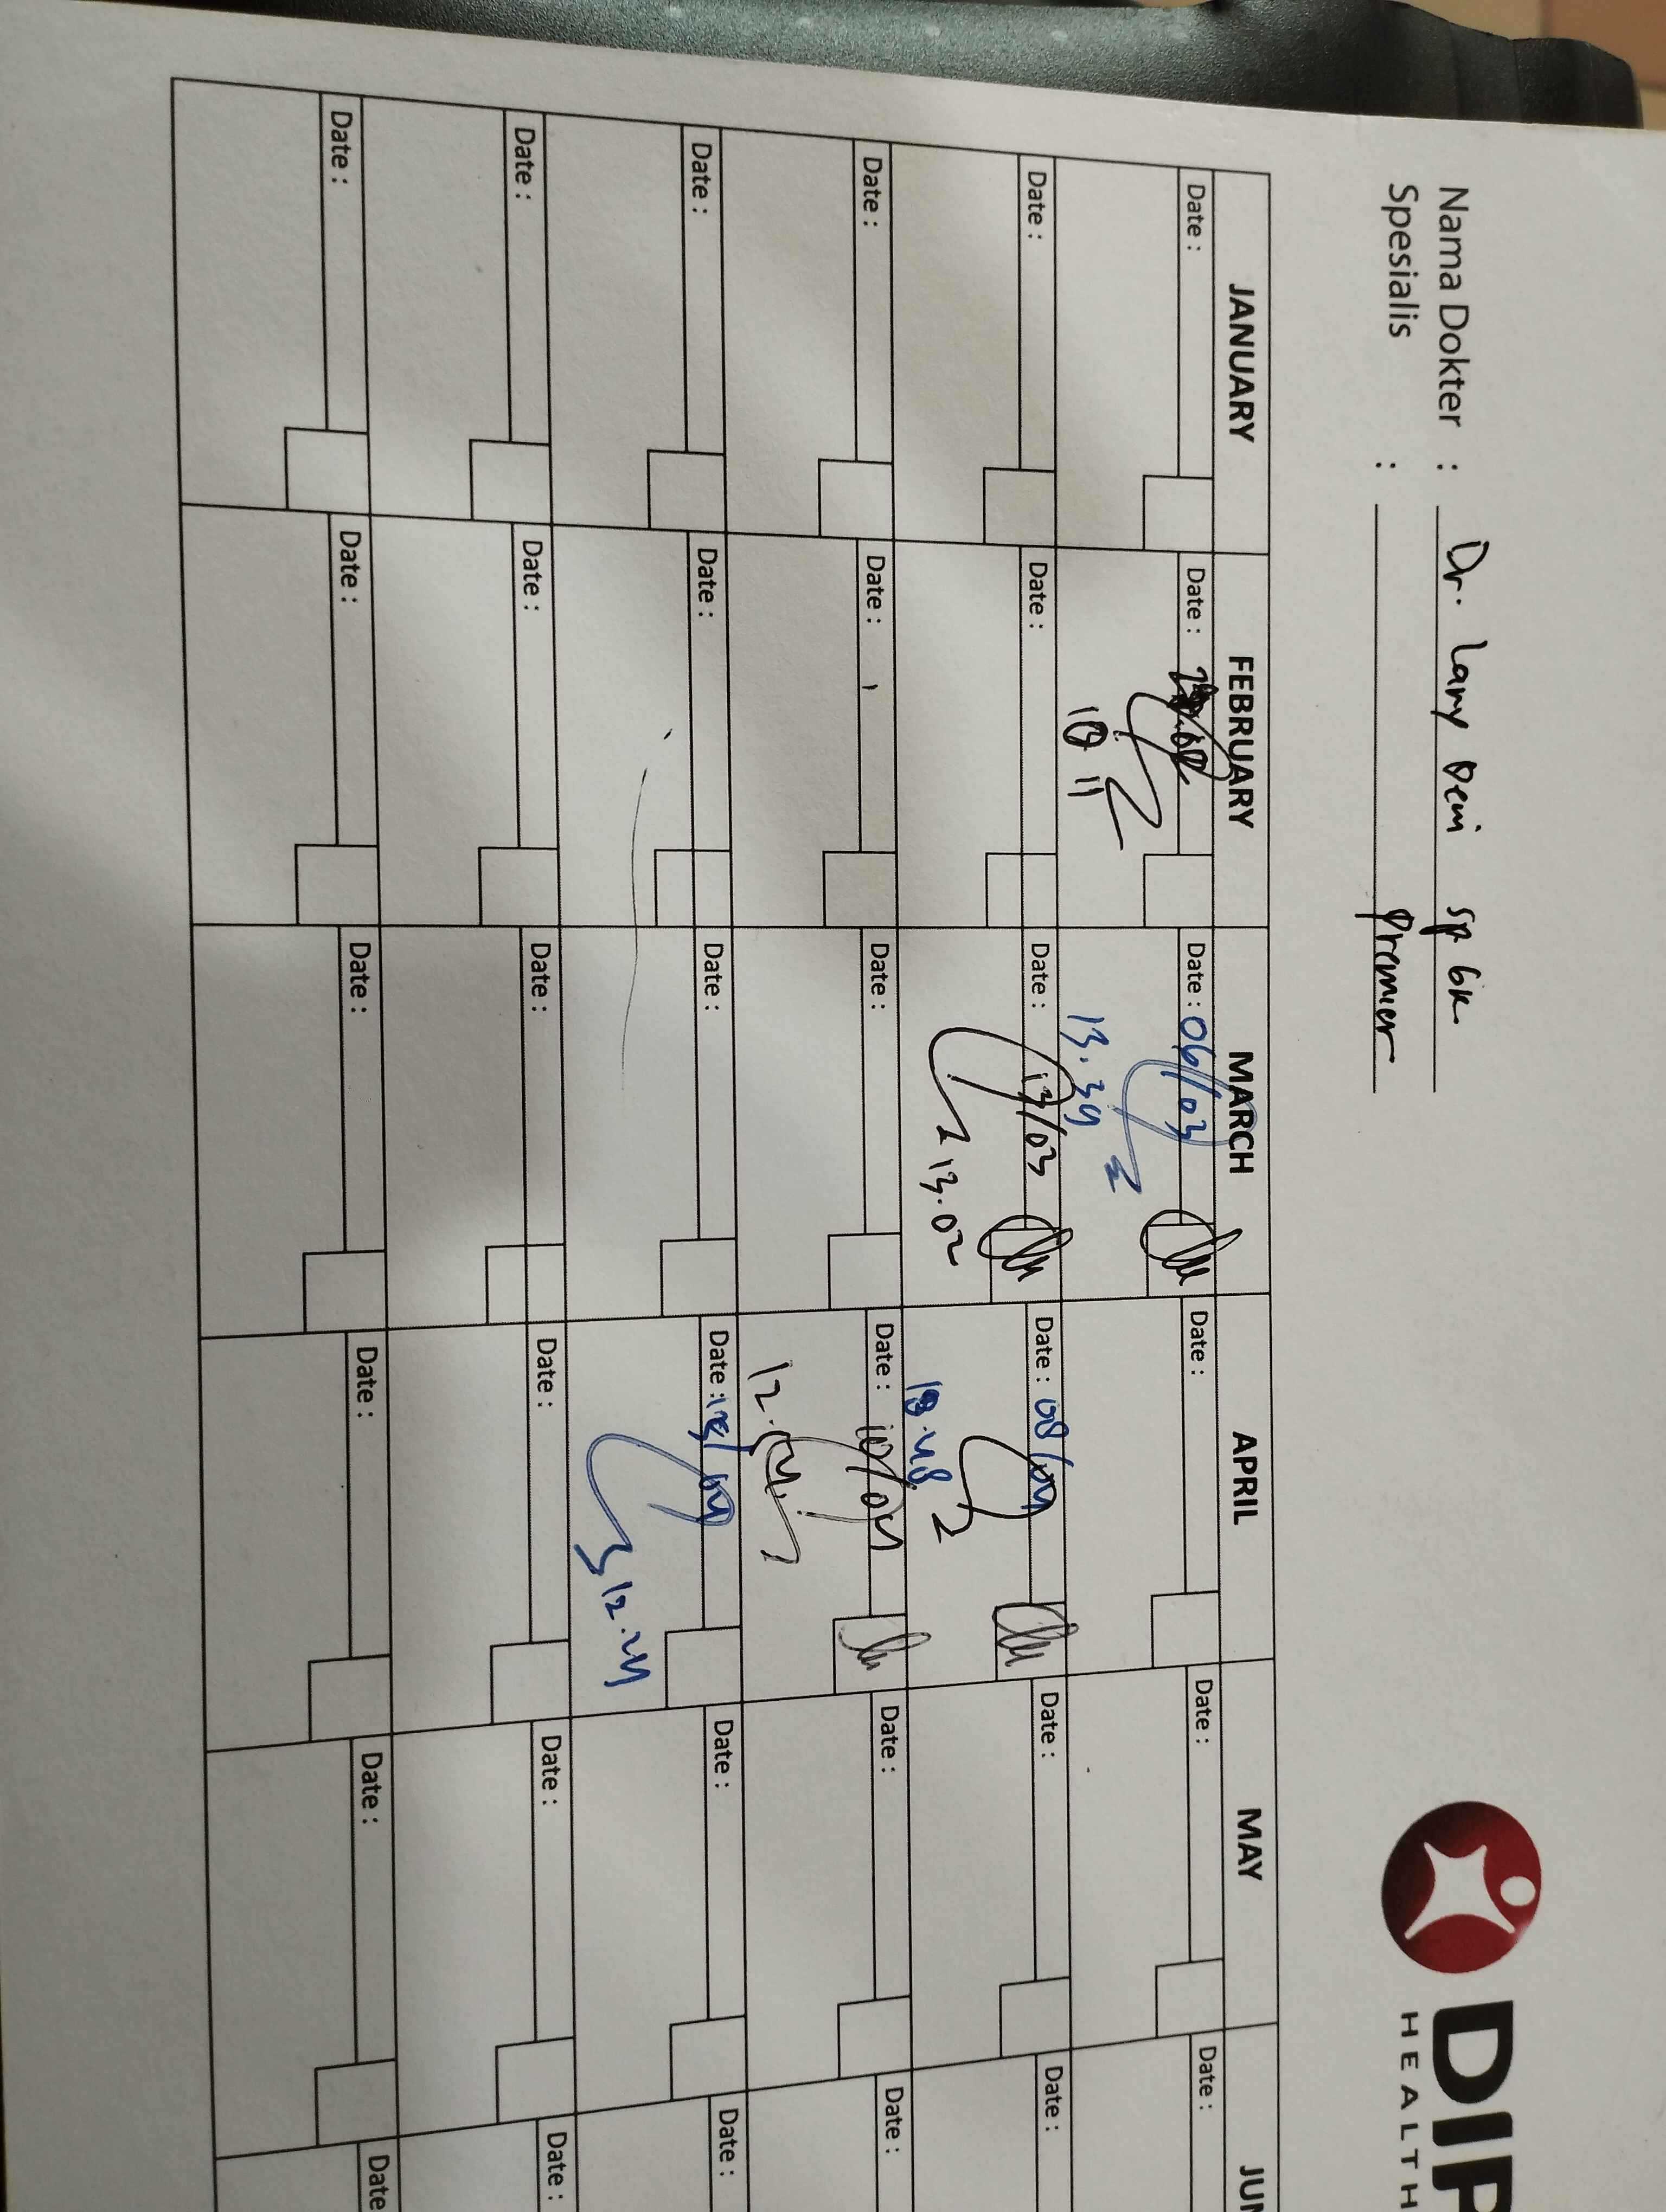 Nama Dokter : Dr. Lany Deni sp 6k
Spesialis : Premier
DIP
HEALTH
JANUARY FEBRUARY MARCH APRIL MAY JUN
Date : Date : Date : 06/03 Date : Date : Date :
10 11 13.39
Date : Date : Date : 13/03 Date : 08/04 Date : Date :
13.02 18.48
Date : Date : Date : Date : 10/04 Date : Date :
Date : Date : Date : Date : Date : Date :
12.24
Date : Date : Date : Date : Date : Date :
Date : Date : Date : Date : Date : Date